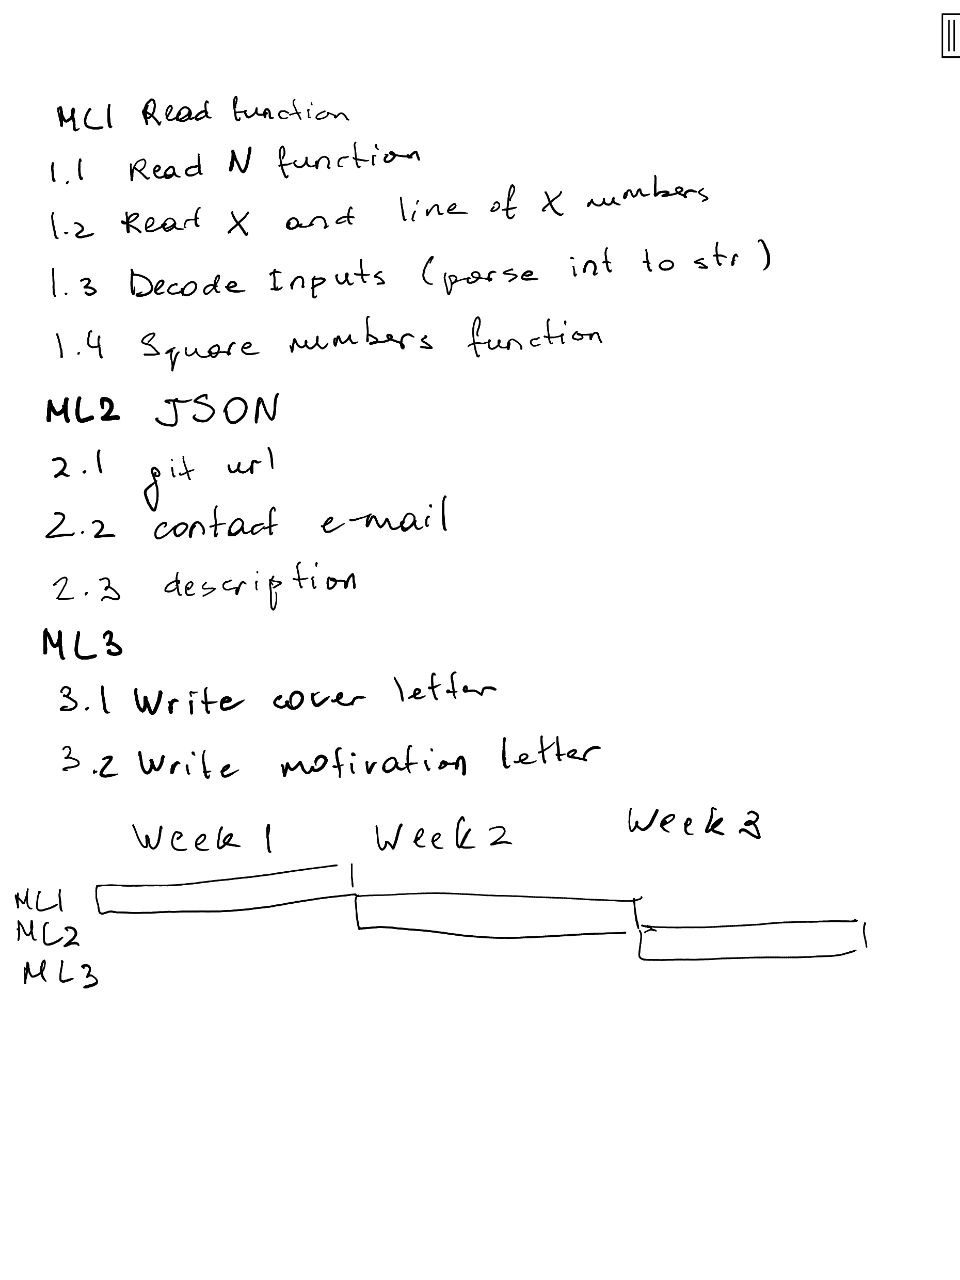 ML1 Read function
1.1 Read N function
1.2 Read X and line of X numbers
1.3 Decode Inputs (parse int to str)
1.4 Square numbers function
ML2 JSON
2.1 git url
2.2 contact e-mail
2.3 description
ML3
3.1 Write cover letter
3.2 Write motivation letter
Week 1 Week 2 Week 3
ML1
ML2
ML3